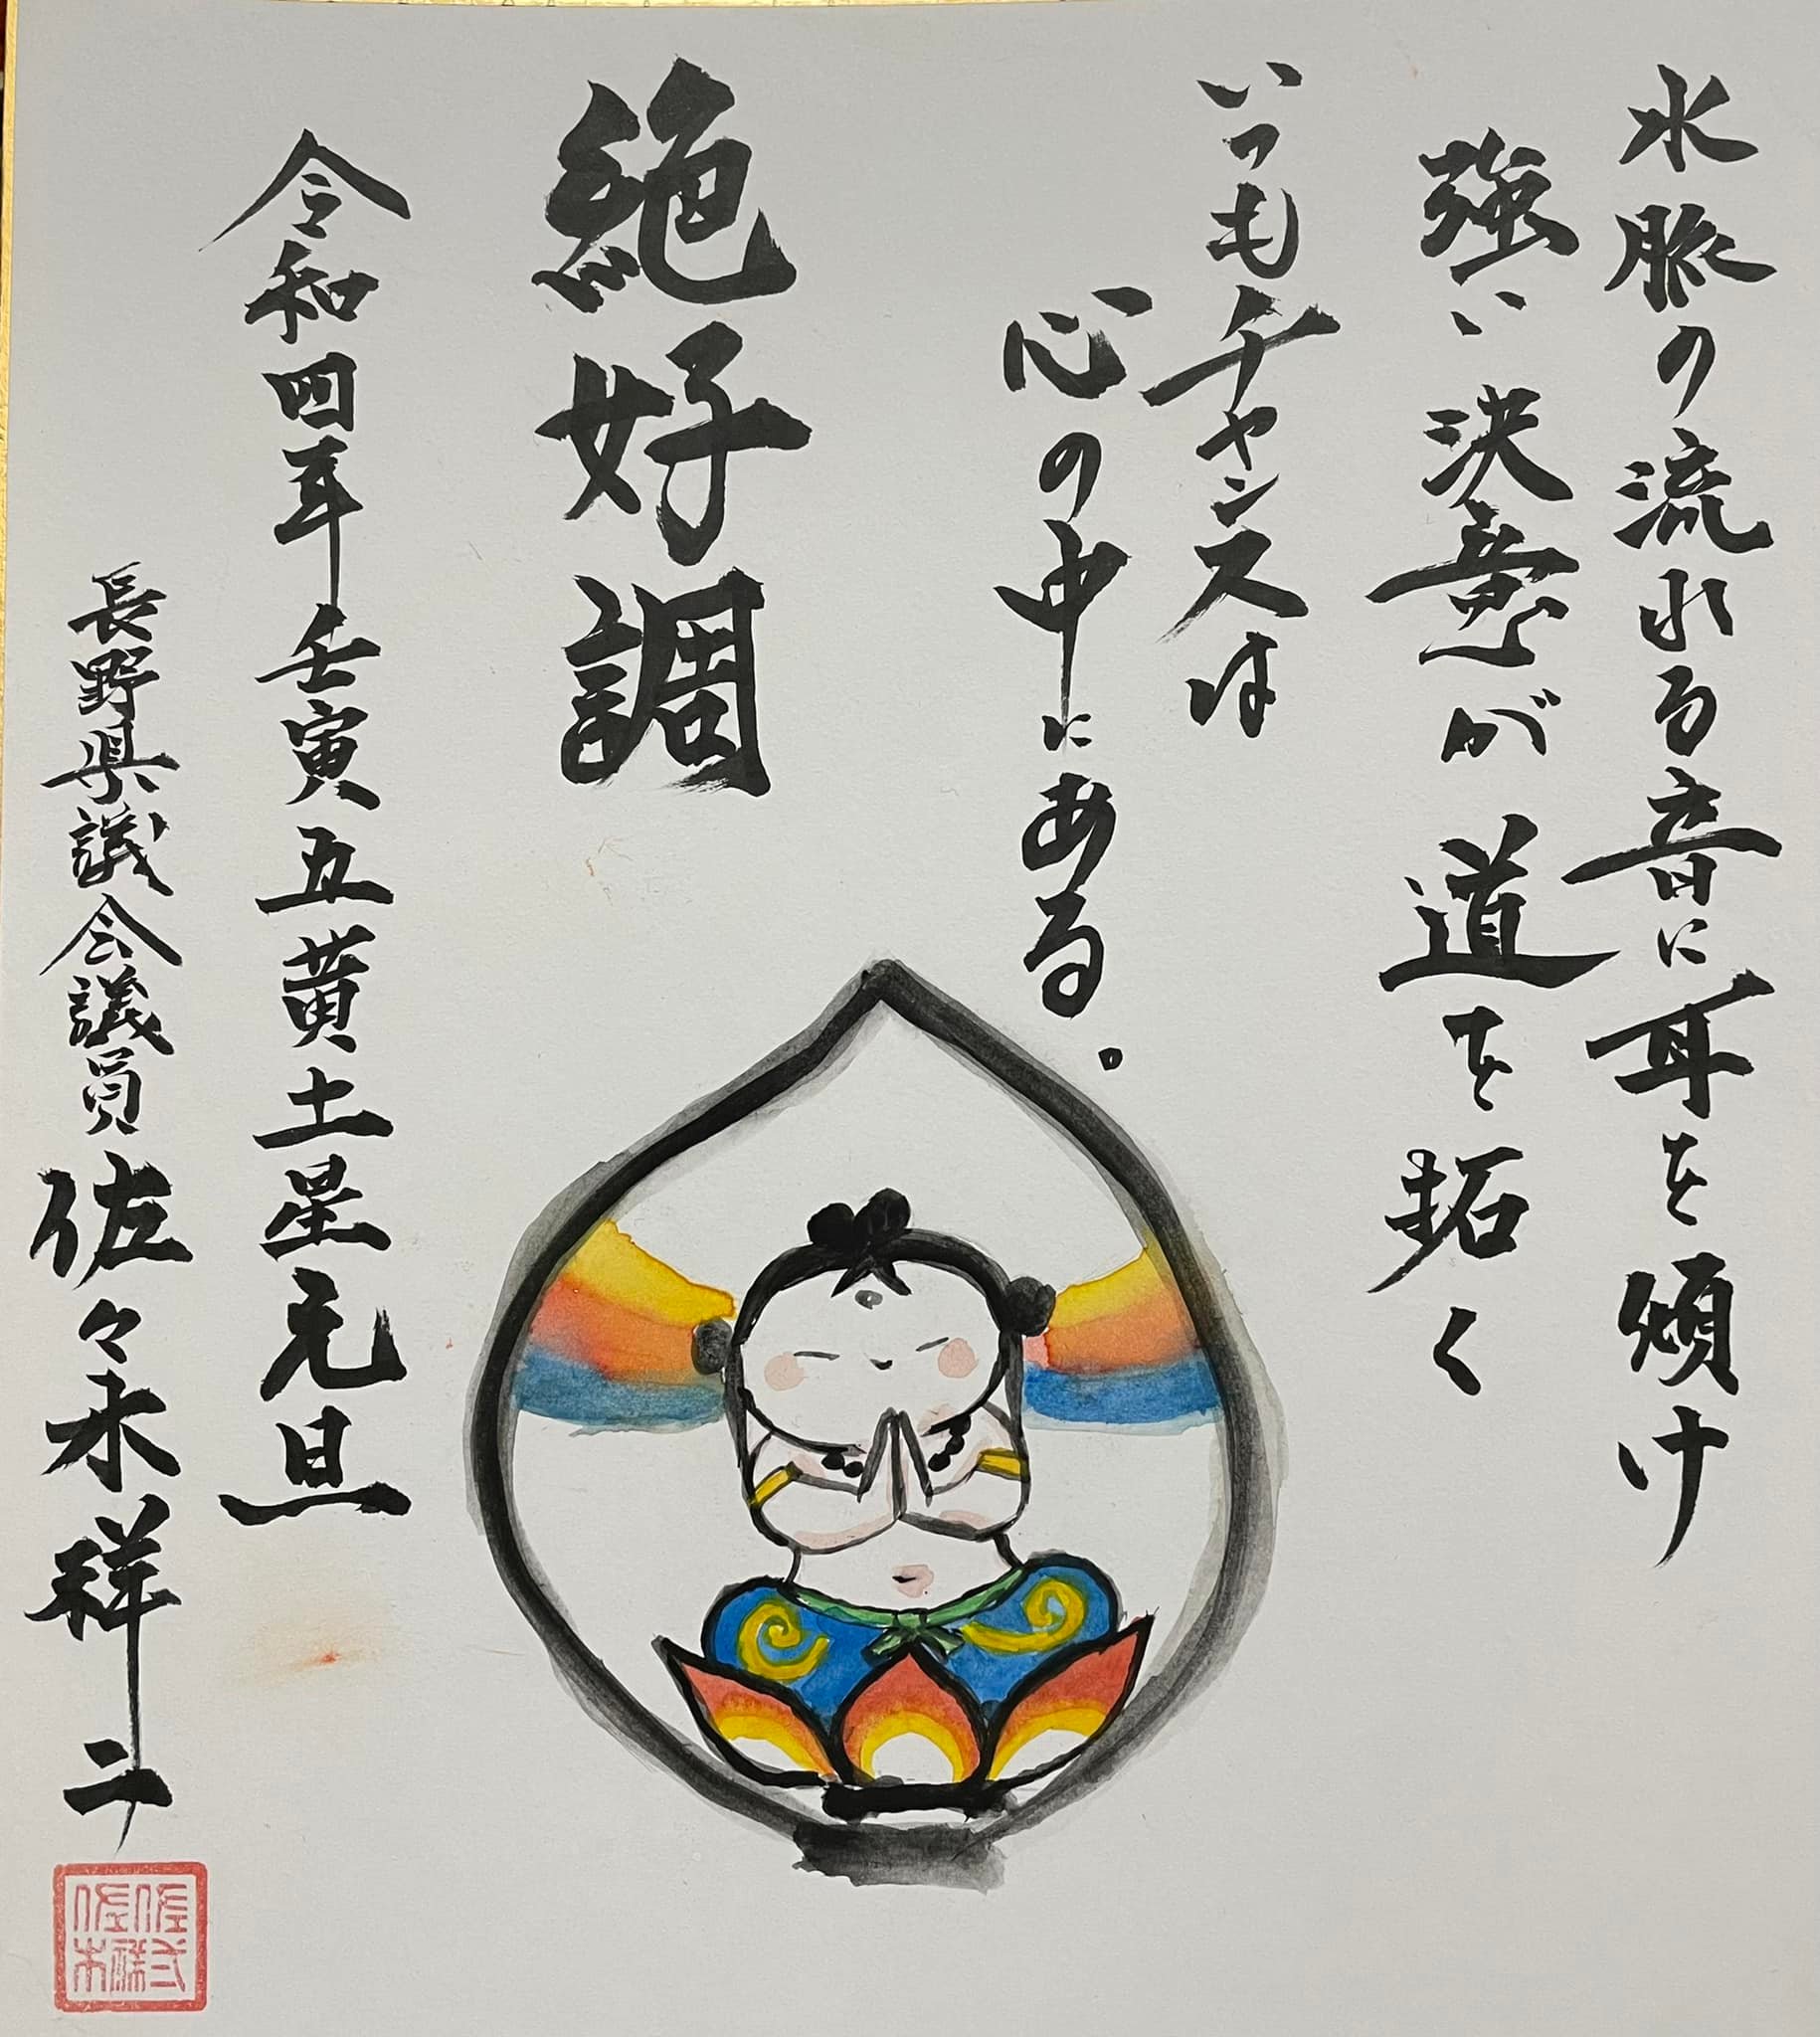 水脈の流れる音に耳を傾け
強い決意が道を拓く
いつもチャンスは
心の中にある。
絶好調
令和四年壬寅五黄土星元旦
長野県議会議員佐々木祥二